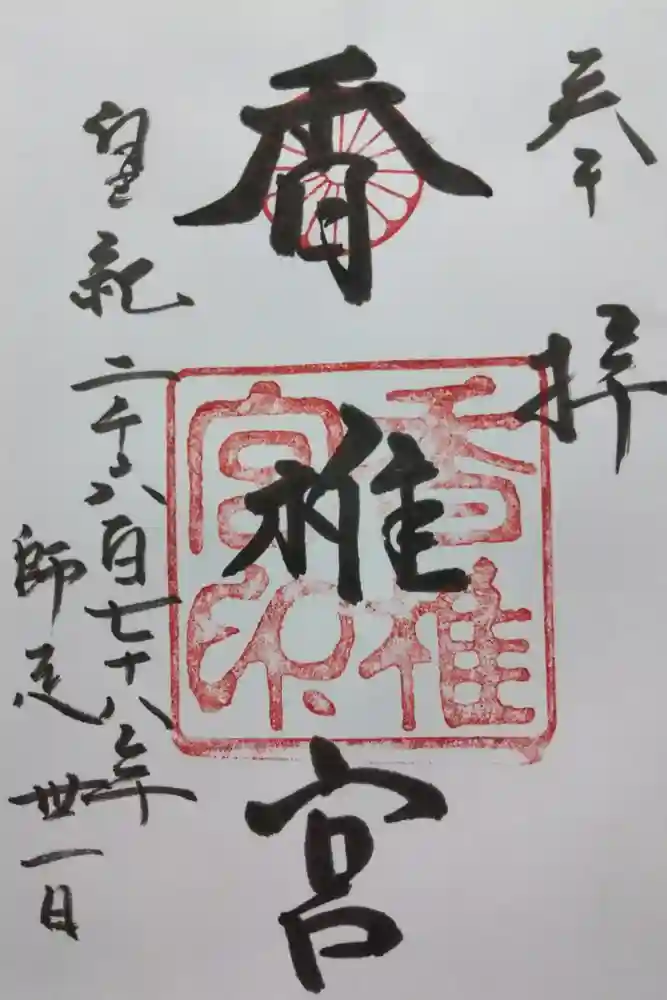 奉拝
香椎宮
皇紀二千六百七十八年
師走丗一日
香椎
宮印